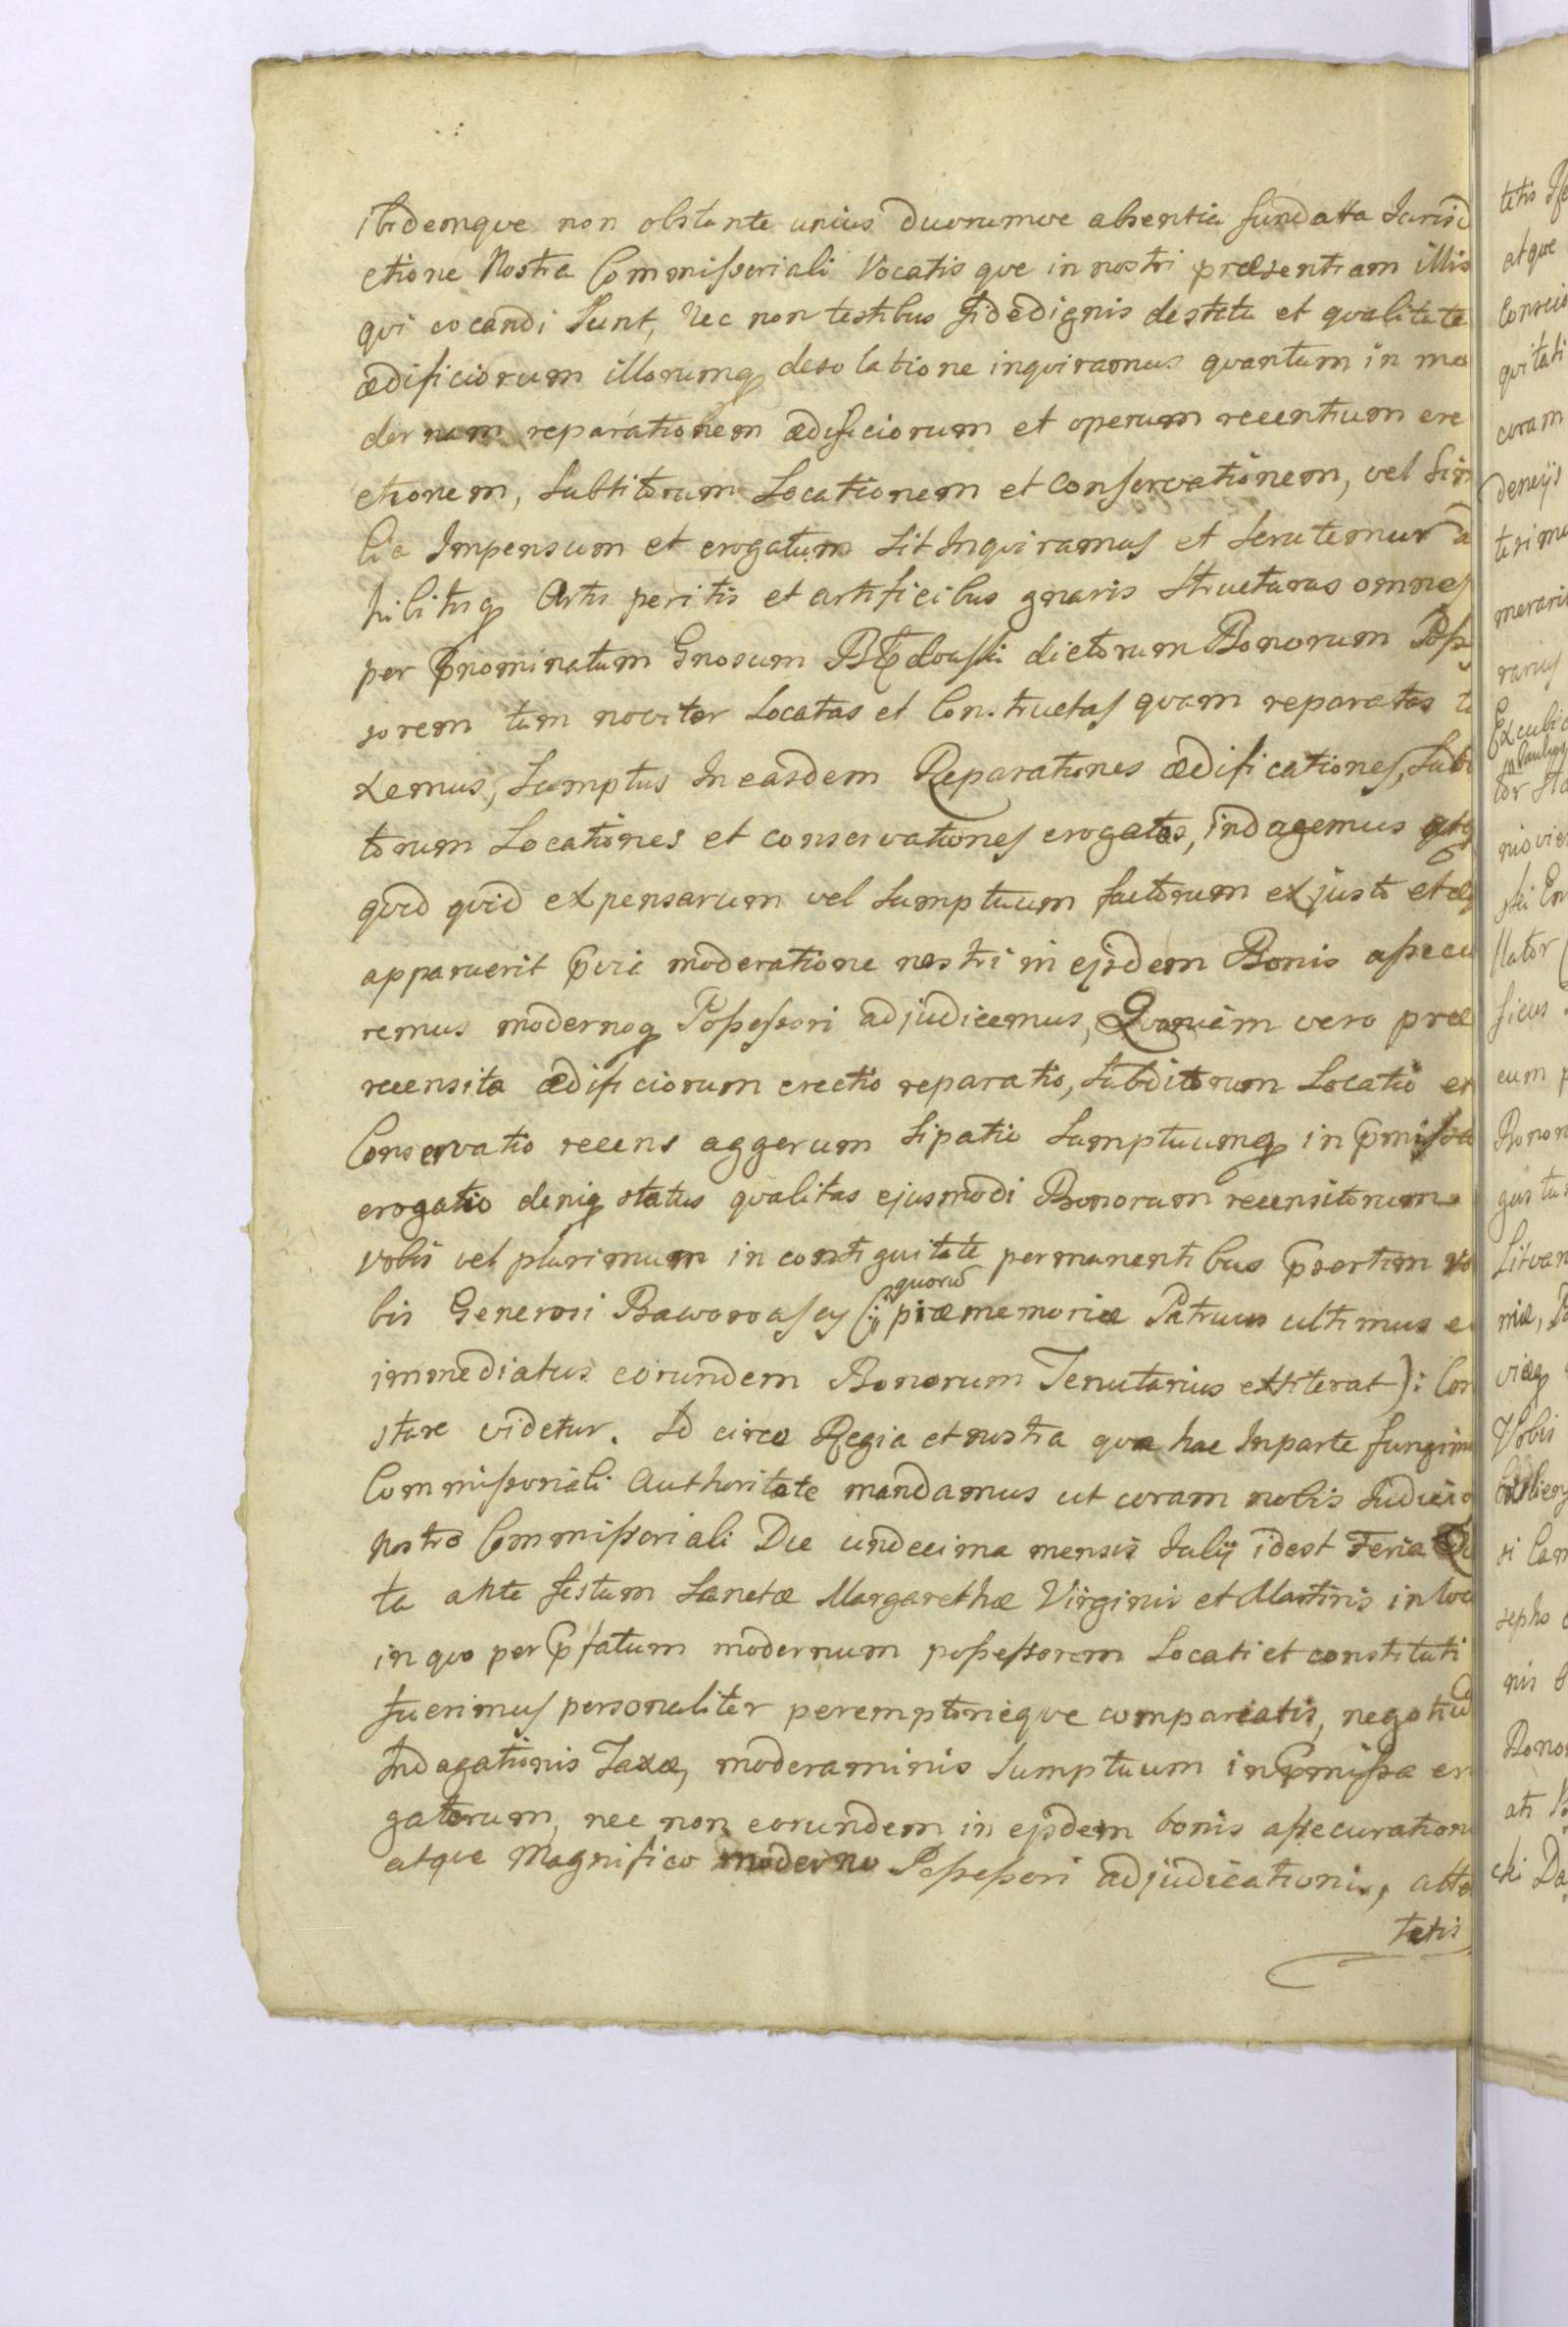 Ibidemque non obstante unius duorumve absentia fundatta Jurisd
ctione Nostra Commissoriali Vocatis que in nostri præsentiam illis
qui vocandi sunt, Nec non testibus fidedignis de statu et qualitate
ædificiorum illorumq desolatione inquiramus quantum in mo
dernam reparationem ædificiorum et operum recentium ere
ctionem, Subditorum Locationem et Conservationem, vel Simi
lia Impensum et erogatum sit Inquiramus et scrutemur a
hibitisq Artis peritis et artificibus gnaris Structuras omnes
per Pnominatum Gnosum dictorum Bonorum Poss
sorem tam noviter Locatas et Constructas quam reparatas t
xemus, Sumptus In easdem Reparationes ædificationes, Subi
torum Locationes et conservationes erogatos, indagemus atq
quid quid expensarum vel Sumptuum factorum ex justo et æq
apparuerit Pvia moderatione nostri in ejsdem Bonis assecu
remus modernoq Possessori adjudicemus, Quoniam vero præ
recensita ædificiorum erectio reparatio, Subditorum Locatio et
Conservatio recens aggerum Sipatio Sumptuumq in Pmissa
erogatio deniq status qualitas ejusmodi Bonorum recensitorum
vobis vel plurimum in contiguitate permanentibus Psertim vo
bis Generosi Baworowscy (: quorum piæ memoriæ Patruus ultimus e
immediatus eorundem Bonorum Tenutarius extiterat ): Con
stare videtur. Id circo Regia et nostra qua hac In parte fungimu
Commissoriali Authoritate mandamus ut coram nobis Judicio
Nostro Commissoriali Die undecima mensis Julij id est Feria Qu
ta ante festum Sanctæ Margarethæ Virginis et Martiris in loco
in quo per Pfatum modernum possessorem Locati et constituti
fuerimus personaliter peremptorieque compareatis, negotiu
Indagationis Taxæ, moderaminis Sumptuum in Pmissa ero
gatorum, nec non eorundem in ejsdem bonis assecuration
atque Magnifico moderno Possessori adjudicationis, atte
tetis
tetis
atque
Conscio
quitati
coram
denijs
merarij
rarus
Exculi
tor
Bonor
Litvan
Vobis
si Cam
sepho
nis
Bonor